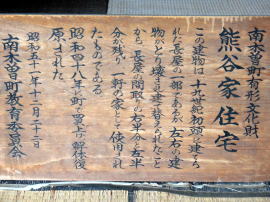 南木曽町有形文化財
熊谷家住宅
この建物は十九世紀初頭に建てら
れた長屋の一部であるが、左右の建
物がとり壊され建て替えられたこと
から、長屋の間取りの右半分と左半
分が残り一軒の家として使用され
たものである。
昭和四十八年に町で買上げ解体復
原された。
昭和五十一年十二月二十二日
南木曽町教育委員会